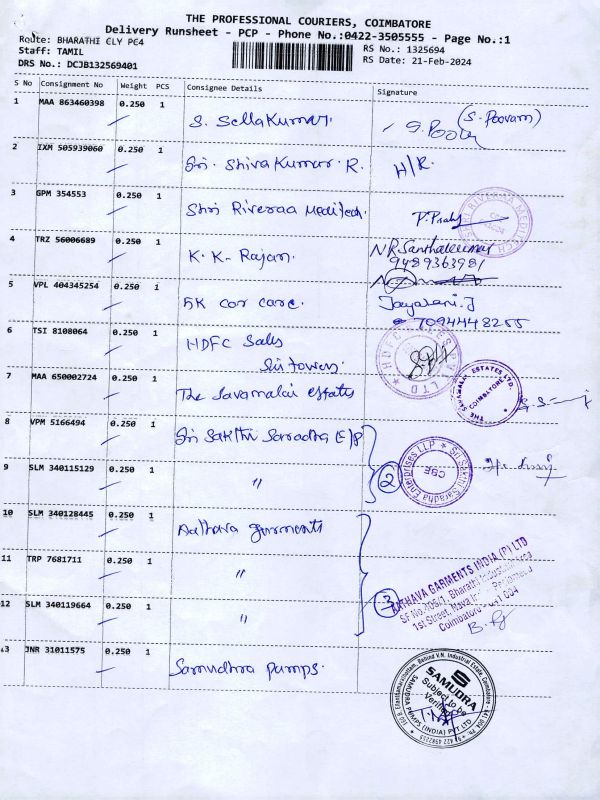 THE PROFESSIONAL COURIERS, COIMBATORE
Delivery Runsheet - PCP - Phone No.:0422-3505555 - Page No.:1
Route: BHARATHI CLY PC4
Staff: TAMIL
DRS No.: DCJB132569401
RS No.: 1325694
RS Date: 21-Feb-2024
S No Consignment No Weight PCS Consignee Details Signature
1 MAA 863460398 0.250 1 S. Sellakumar. (S. Poovam)
2 IXM 505939060 0.250 1 Sri. Shivakumar. R. H/R.
3 GPM 354553 0.250 1 Shri Riveraa Meditech.
SHRI RIVERAA MEDITECH
4 TRZ 56006689 0.250 1 K. K- Rajan. N R Santhakumar
9489363981
5 VPL 404345254 0.250 1 SK car care. Jayarani. J
7094448255
6 TSI 8108064 0.250 1 HDFC Sales
Sri towers.
7 MAA 650002724 0.250 1 The Savamalai estates
THE SAVAMALAI ESTATES LTD. COIMBATORE
8 VPM 5166494 0.250 1 Sri Sakthi Saradha E/P
9 SLM 340115129 0.250 1 " 2
Sri Sakthi Saradha Enterprises LLP CBE
10 SLM 340128445 0.250 1 Aathava garments
11 TRP 7681711 0.250 1 "
12 SLM 340119664 0.250 1 " 3
AATHAVA GARMENTS INDIA (P) LTD
SF No. 705/1, Bharathi Industrial Area
1st Street, Nava India, Peelamedu
Coimbatore - 641 004
13 JNR 31011575 0.250 1 Samudhra pumps.
SAMUDRA
Subject to be
Verified
SAMUDRA PUMPS (INDIA) PVT. LTD